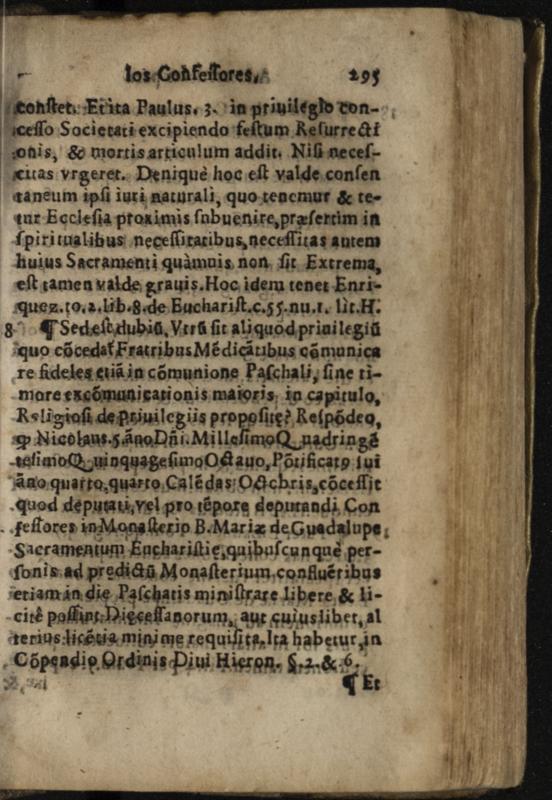 los Confessores. 295
constet. Et ita Paulus. 3. in priuilegio con-
cesso Societati excipiendo festum Resurrecti
onis, & mortis articulum addit. Nisi neces-
citas vrgeret. Deniquè hoc est valde consen
taneum ipsi iuri naturali, quo tenemur & te-
tur Ecclesia proximis subuenire, præsertim in
spiritualibus necessitatibus, necessitas autem
huius Sacramenti quàmuis non sit Extrema,
est tamen valde grauis. Hoc idem tenet Enri-
quez. to. 2. lib. 8. de Eucharist. c. 55. nu. 1. lit. H.
8 ¶ Sed est dubiũ, Vtrũ sit aliquod priuilegiũ
quo cõcedat Fratribus Mẽdicãtibus cõmunica
re fideles etiã in cõmunione Paschali, sine ti-
more excõmunicationis maioris in capitulo,
Religiosi de priuilegiis propositę? Respõdeo,
ꝙ Nicolaus. 5. ãno Dñi. Millesimo Quadringẽ
tesimo Quinquagesimo Octauo, Põtificatꝰ sui
ãno quarto, quarto Calẽdas Octobris, cõcessit
quod deputati, vel pro tẽpore deputandi Con
fessores in Monasterio B. Mariæ de Guadalupe
Sacramentum Eucharistię, quibuscunquè per-
sonis ad predictũ Monasterium confluẽtibus
etiam in die Paschatis ministrare libere & li-
citè possint Diœcessanorum, aut cuiuslibet, al
terius licẽtia minime requisita. Ita habetur, in
Cõpendio Ordinis Diui Hieron. §. 2. & 6.
¶ Et